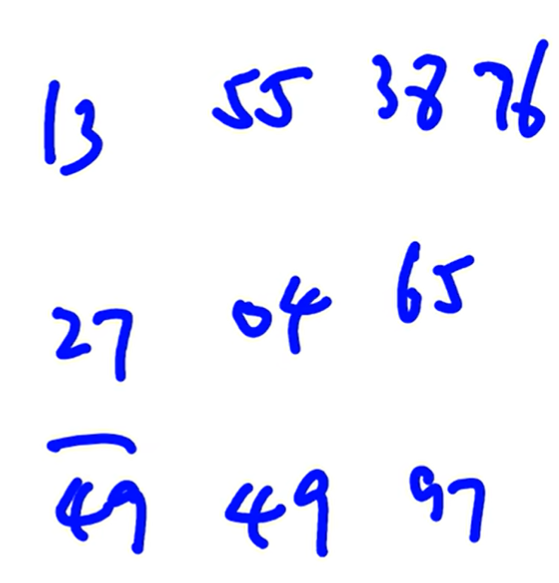 13 55 38 76
27 04 65
49 49 97